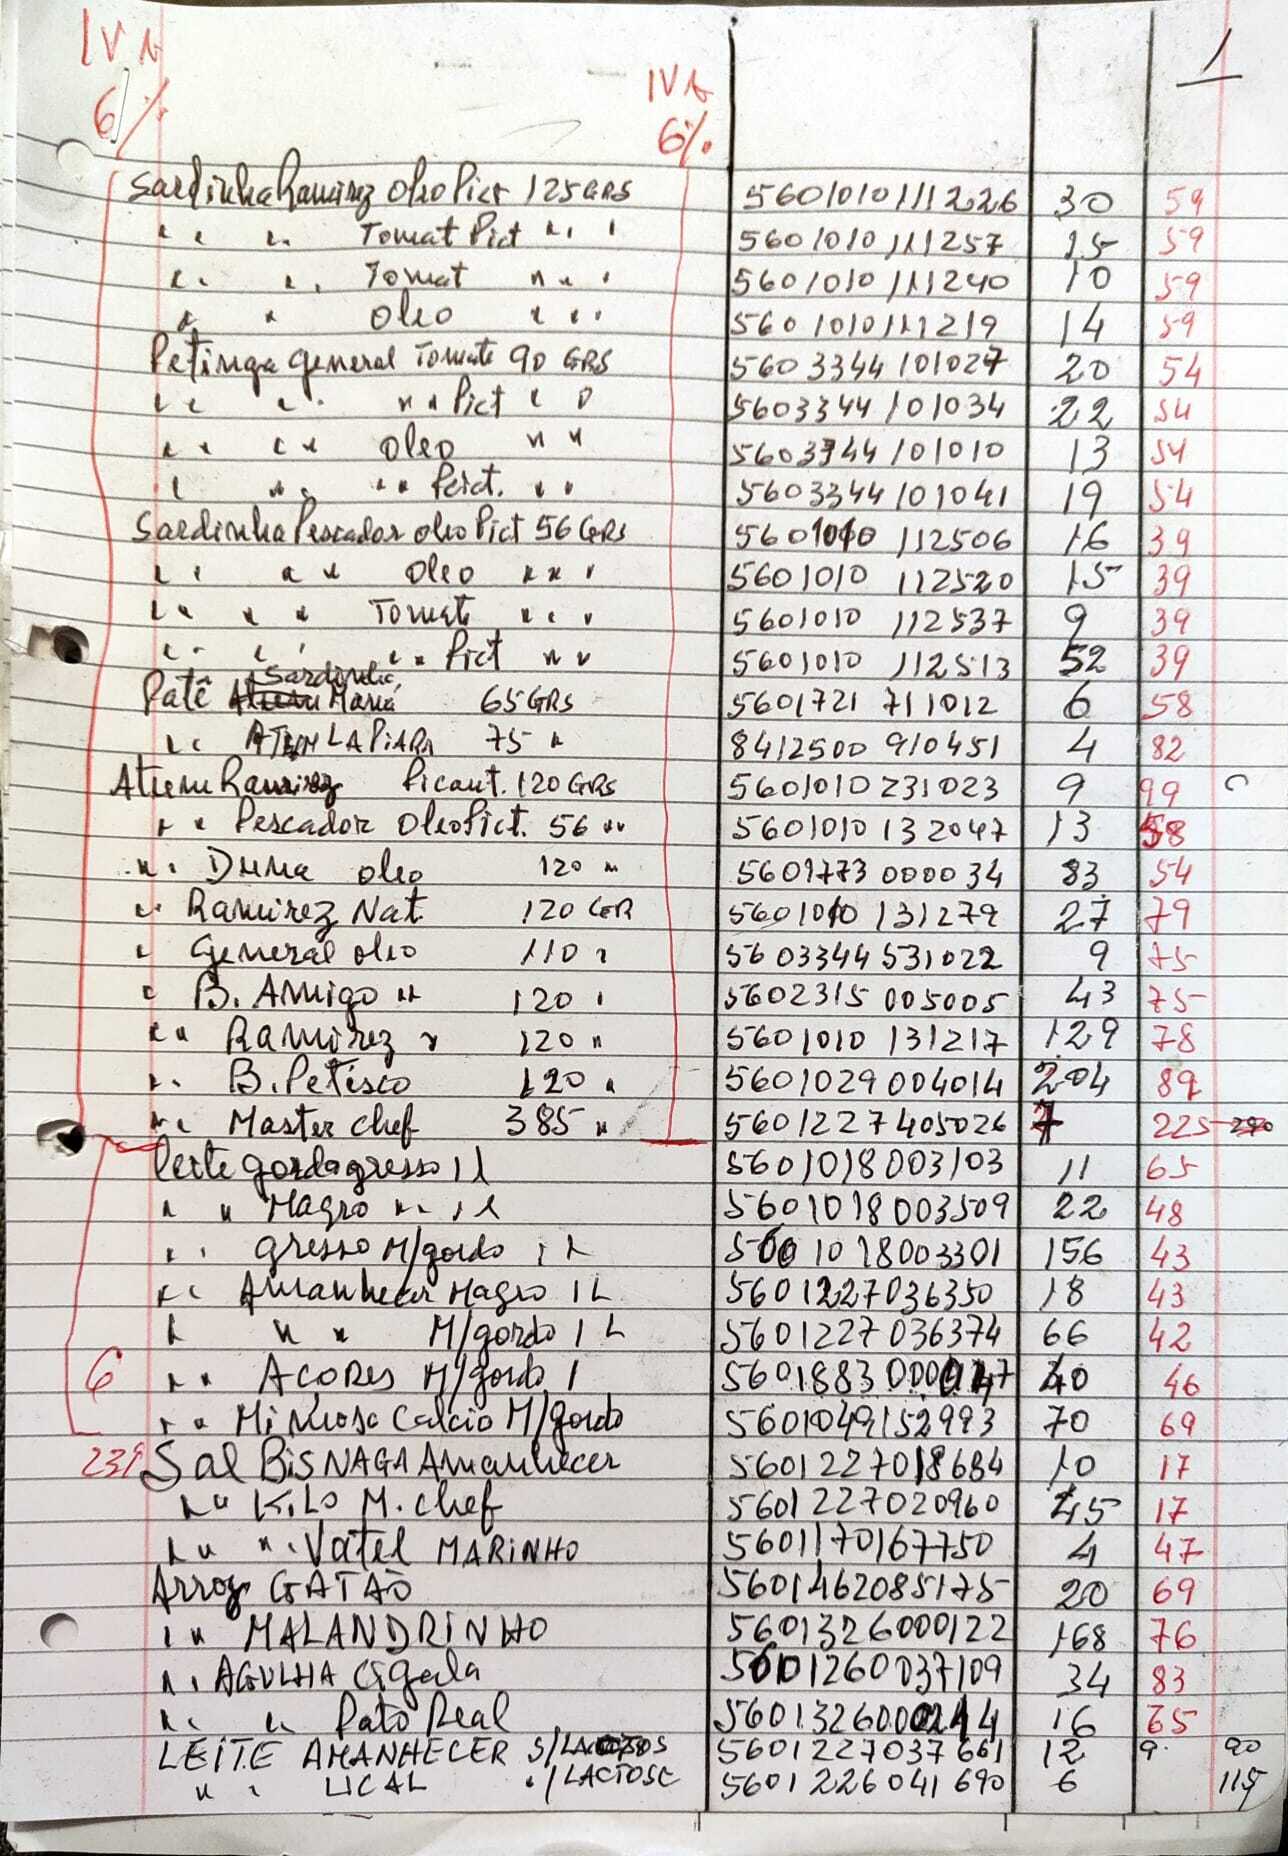 IVA IVA 1
6% 6%
Sardinha Ramirez Oleo Pict 125 GRS 5601010111226 30 59
" " " Tomat Pict " " " 5601010111257 15 59
" " " " Tomat " " " 5601010111240 10 59
" " Oleo " " " 5601010111219 14 59
Petinga General Tomate 90 GRS 5603344101027 20 54
" " " " " " Pict " " 5603344101034 22 54
" " " " Oleo " " 5603344101010 13 54
" " " " " Pict. " " 5603344101041 19 54
Sardinha Pescador oleo Pict 56 GRS 5601010 112506 16 39
" " " " Oleo " " " 5601010 112520 15 39
" " " " Tomate " " " 5601010 112537 9 39
" " " " " " Pict " " 5601010 112513 52 39
Patê Sardinha Maná 65 GRS 5601721 711012 6 58
" " ATUM LA PIARA 75 " 8412500 910451 4 82
Atum Ramirez Picant. 120 GRS 5601010 231023 9 99
" " Pescador Oleo Pict. 56 " " 5601010 132047 13 58
" " Duna oleo 120 " 5601773 000034 83 54
" " Ramirez Nat. 120 GR 5601010 131279 27 79
" General oleo 110 " 5603344 531022 9 75
" B. Amigo " " 120 " 5602315 005005 43 75
" " Ramirez " 120 " 5601010 131217 129 78
" " B. Petisco 120 " 5601029 004014 204 89
" " Master Chef 385 " 5601227405026 7 225
Leite gordo gresso 1 l 5601018003103 11 65
" " Magro " " 1 l 5601018003509 22 48
" " gresso M/gordo 1 L 5601018003301 156 43
" " Amanhecer Magro 1 L 5601227036350 18 43
" " " M/gordo 1 L 5601227036374 66 42
6 " " AÇORES M/gordo 1 5601883 40 46
" " Mimosa Calcio M/gordo 5601049152993 70 69
23% Sal BISNAGA Amanhecer 5601227018684 10 17
" " KILO M. Chef 5601227020960 45 17
" " " " Vatel MARINHO 5601170167750 4 47
Arroz GATÃO 5601462085175 20 69
" " MALANDRINHO 5601326000122 168 76
" " AGULHA Cigala 5601260037109 34 83
" " " " Pato Real 16 65
LEITE AMANHECER S/ 5601227037661 12 9 90
" " LICAL "/LACTOSE 5601226041690 6 115